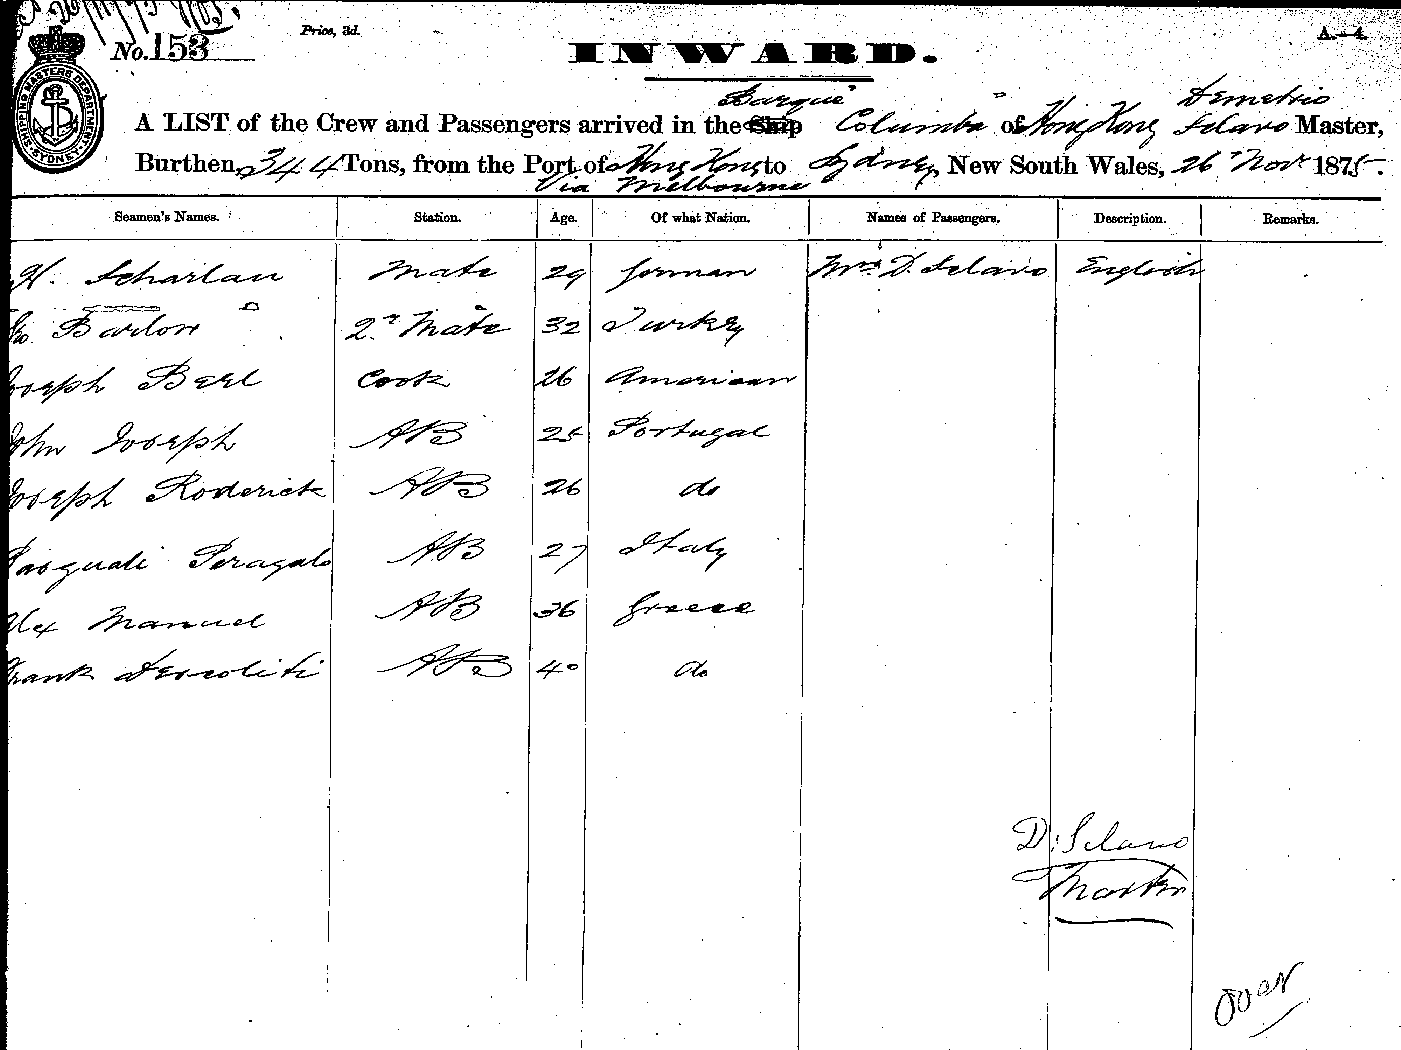 No. 153
Price, 3d.
A.—4.
INWARD.
SHIPPING MASTERS DEPARTMENT SYDNEY
Barque Demetrio
A LIST of the Crew and Passengers arrived in the Ship "Columba" of Hong Kong Sclavo Master,
Burthen, 344 Tons, from the Port of Hong Kong to Sydney, New South Wales, 26th Novr 1875.
Via Melbourne
Seamen's Names. Station. Age. Of what Nation. Names of Passengers. Description. Remarks.
H. Scharlau Mate 29 German Mrs D. Sclavo English
Barlow 2nd Mate 32 Turkey
Joseph Berl Cook 26 American
John Joseph AB 25 Portugal
Joseph Roderick AB 26 do
Pasquali Peragalo AB 27 Italy
Alex Manuel AB 36 Greece
Frank AB 40 do
D. Sclavo
Master
Over